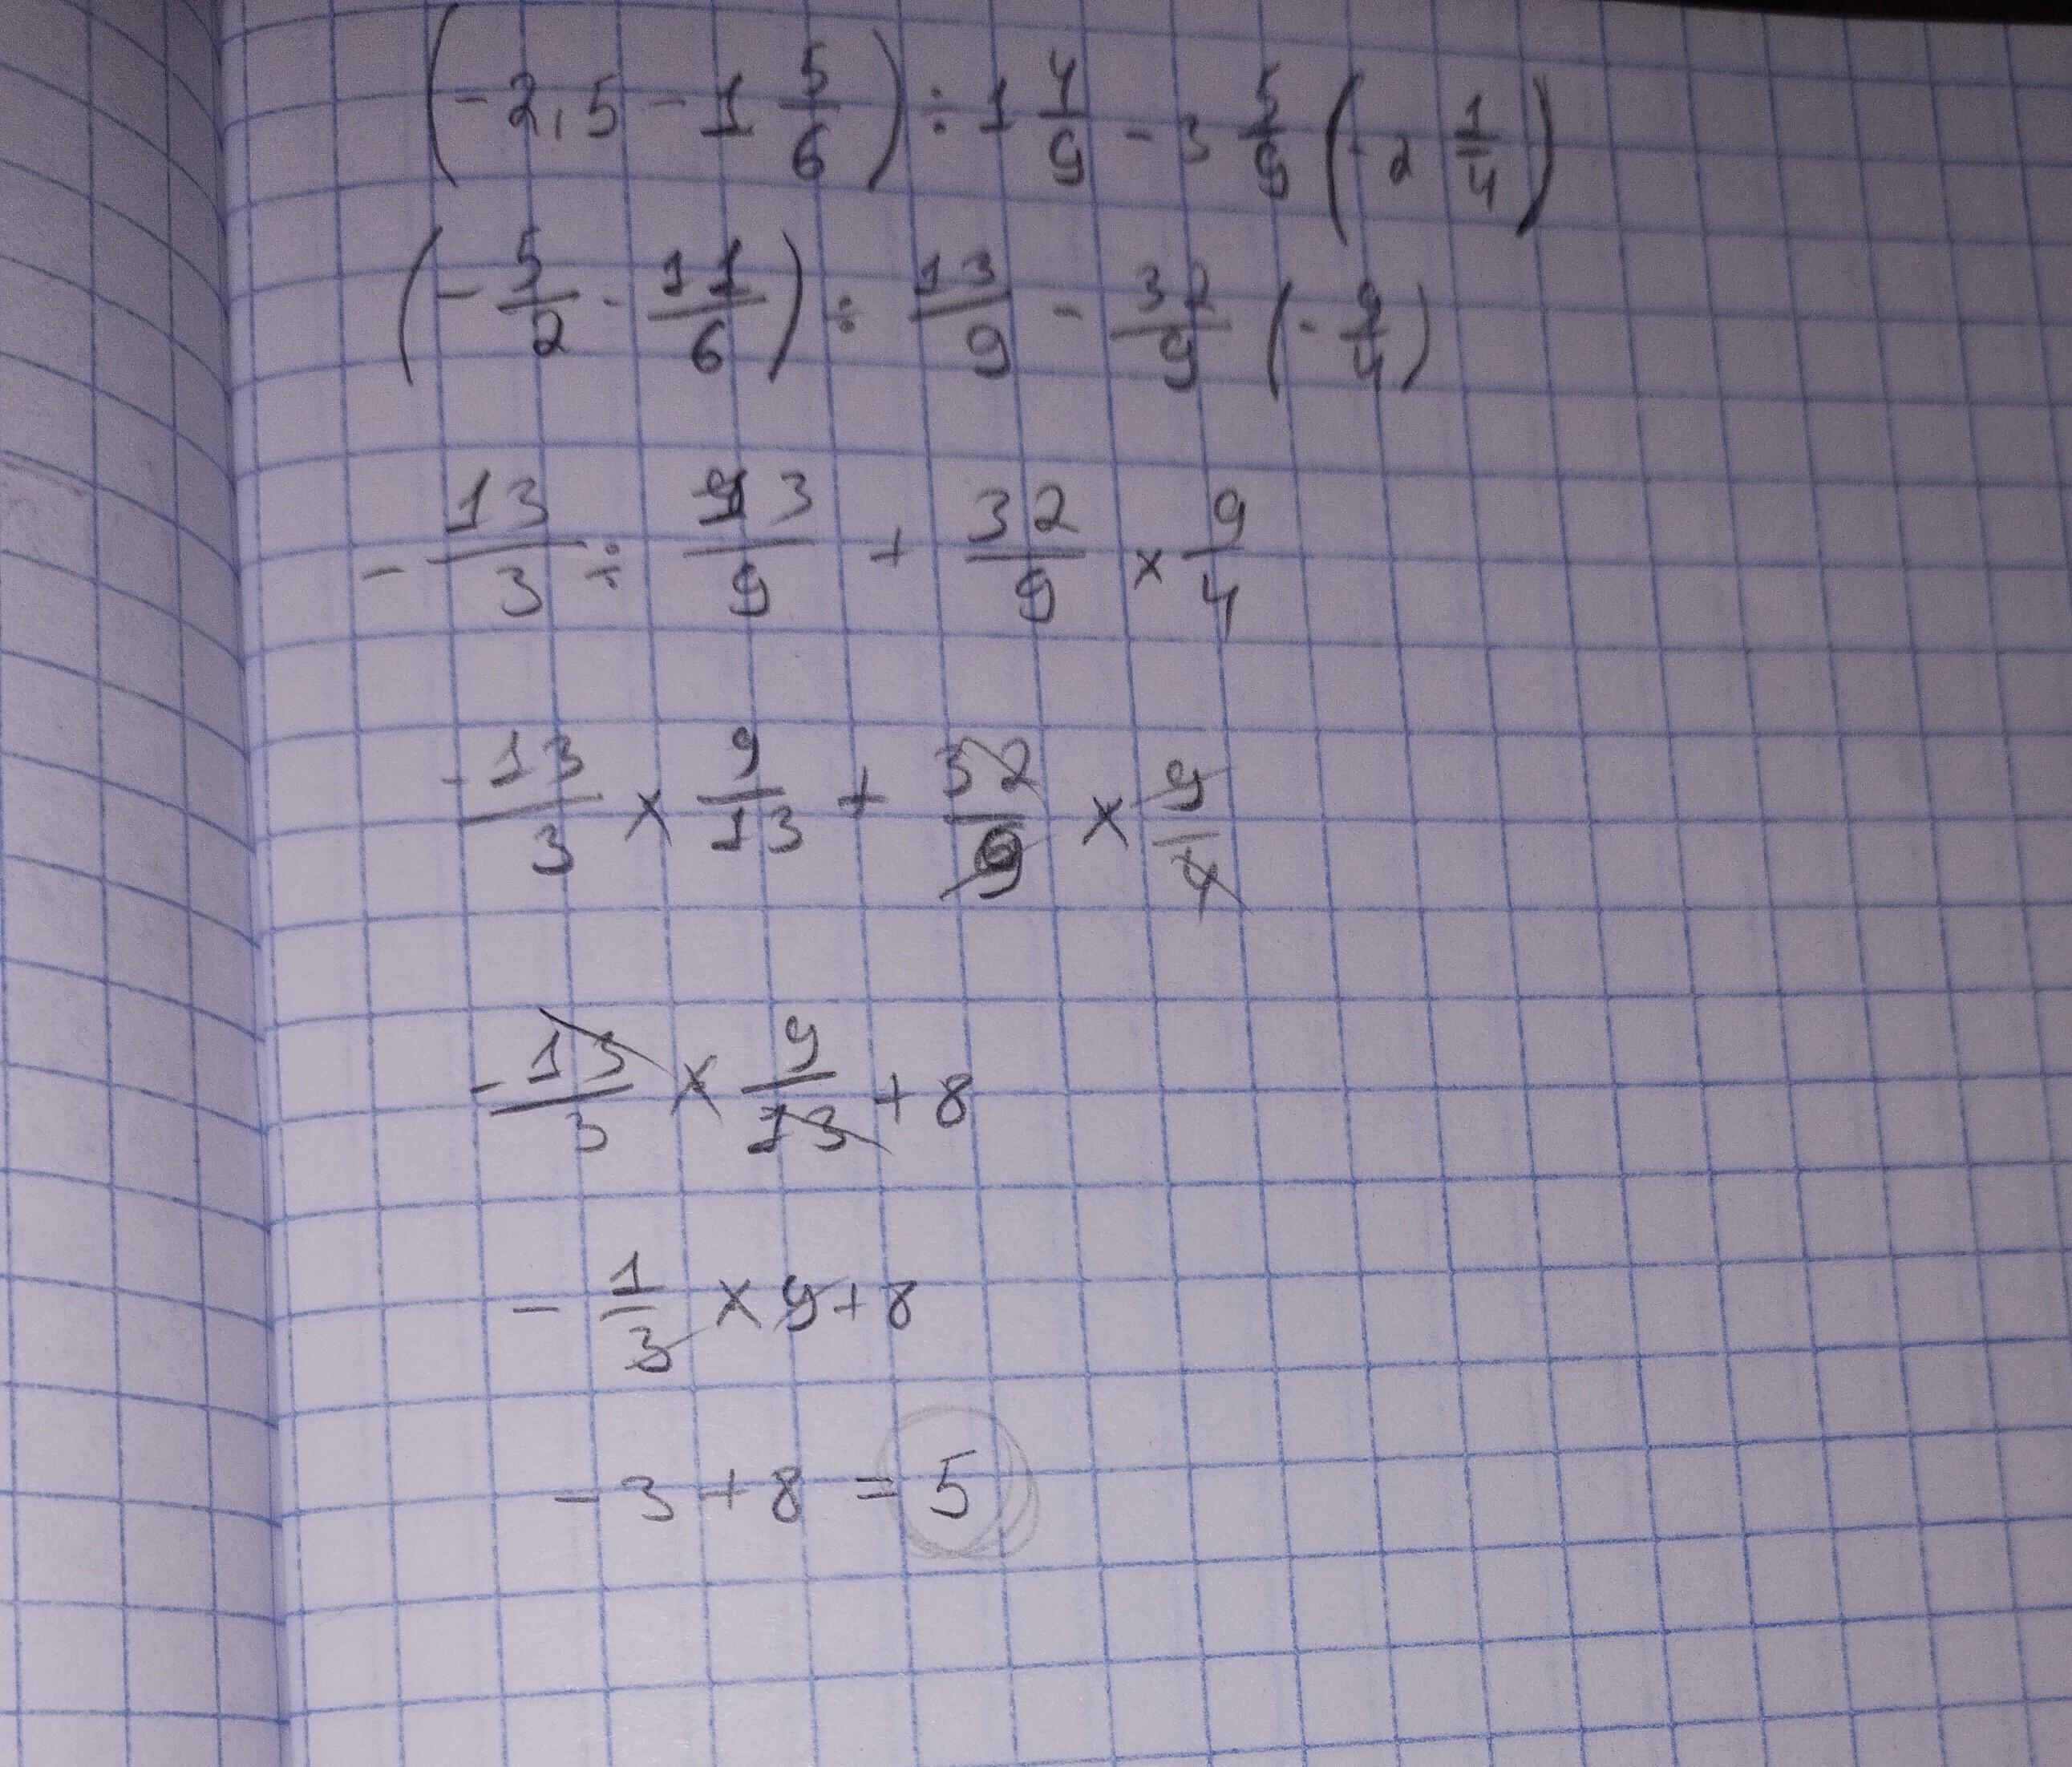 (-2,5 - 1 5/6) ÷ 1 4/9 - 3 5/9 (-2 1/4)
(-5/2 - 11/6) ÷ 13/9 - 32/9 (-9/4)
-13/3 ÷ 13/9 + 32/9 × 9/4
-13/3 × 9/13 + 32/9 × 9/4
-13/3 × 9/13 + 8
-1/3 × 9 + 8
-3 + 8 = 5